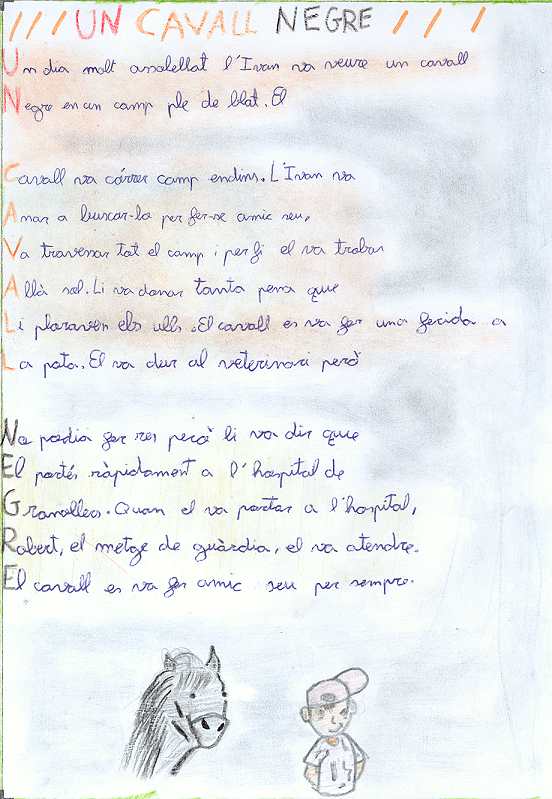 ///UN CAVALL NEGRE///
Un dia molt assolellat l'Ivan va veure un cavall
Negre en un camp ple de blat. El
Cavall va córrer camp endins. L'Ivan va
Anar a buscar-lo per fer-se amic seu,
Va travessar tot el camp i per fi el va trobar
Allà sol. Li va donar tanta pena que
Li ploraven els ulls. El cavall es va fer una ferida a
La pota. El va dur al veterinari però
No podia fer res però li va dir que
El portés ràpidament a l'hospital de
Granollers. Quan el va portar a l'hospital,
Robert, el metge de guàrdia, el va atendre.
El cavall es va fer amic seu per sempre.